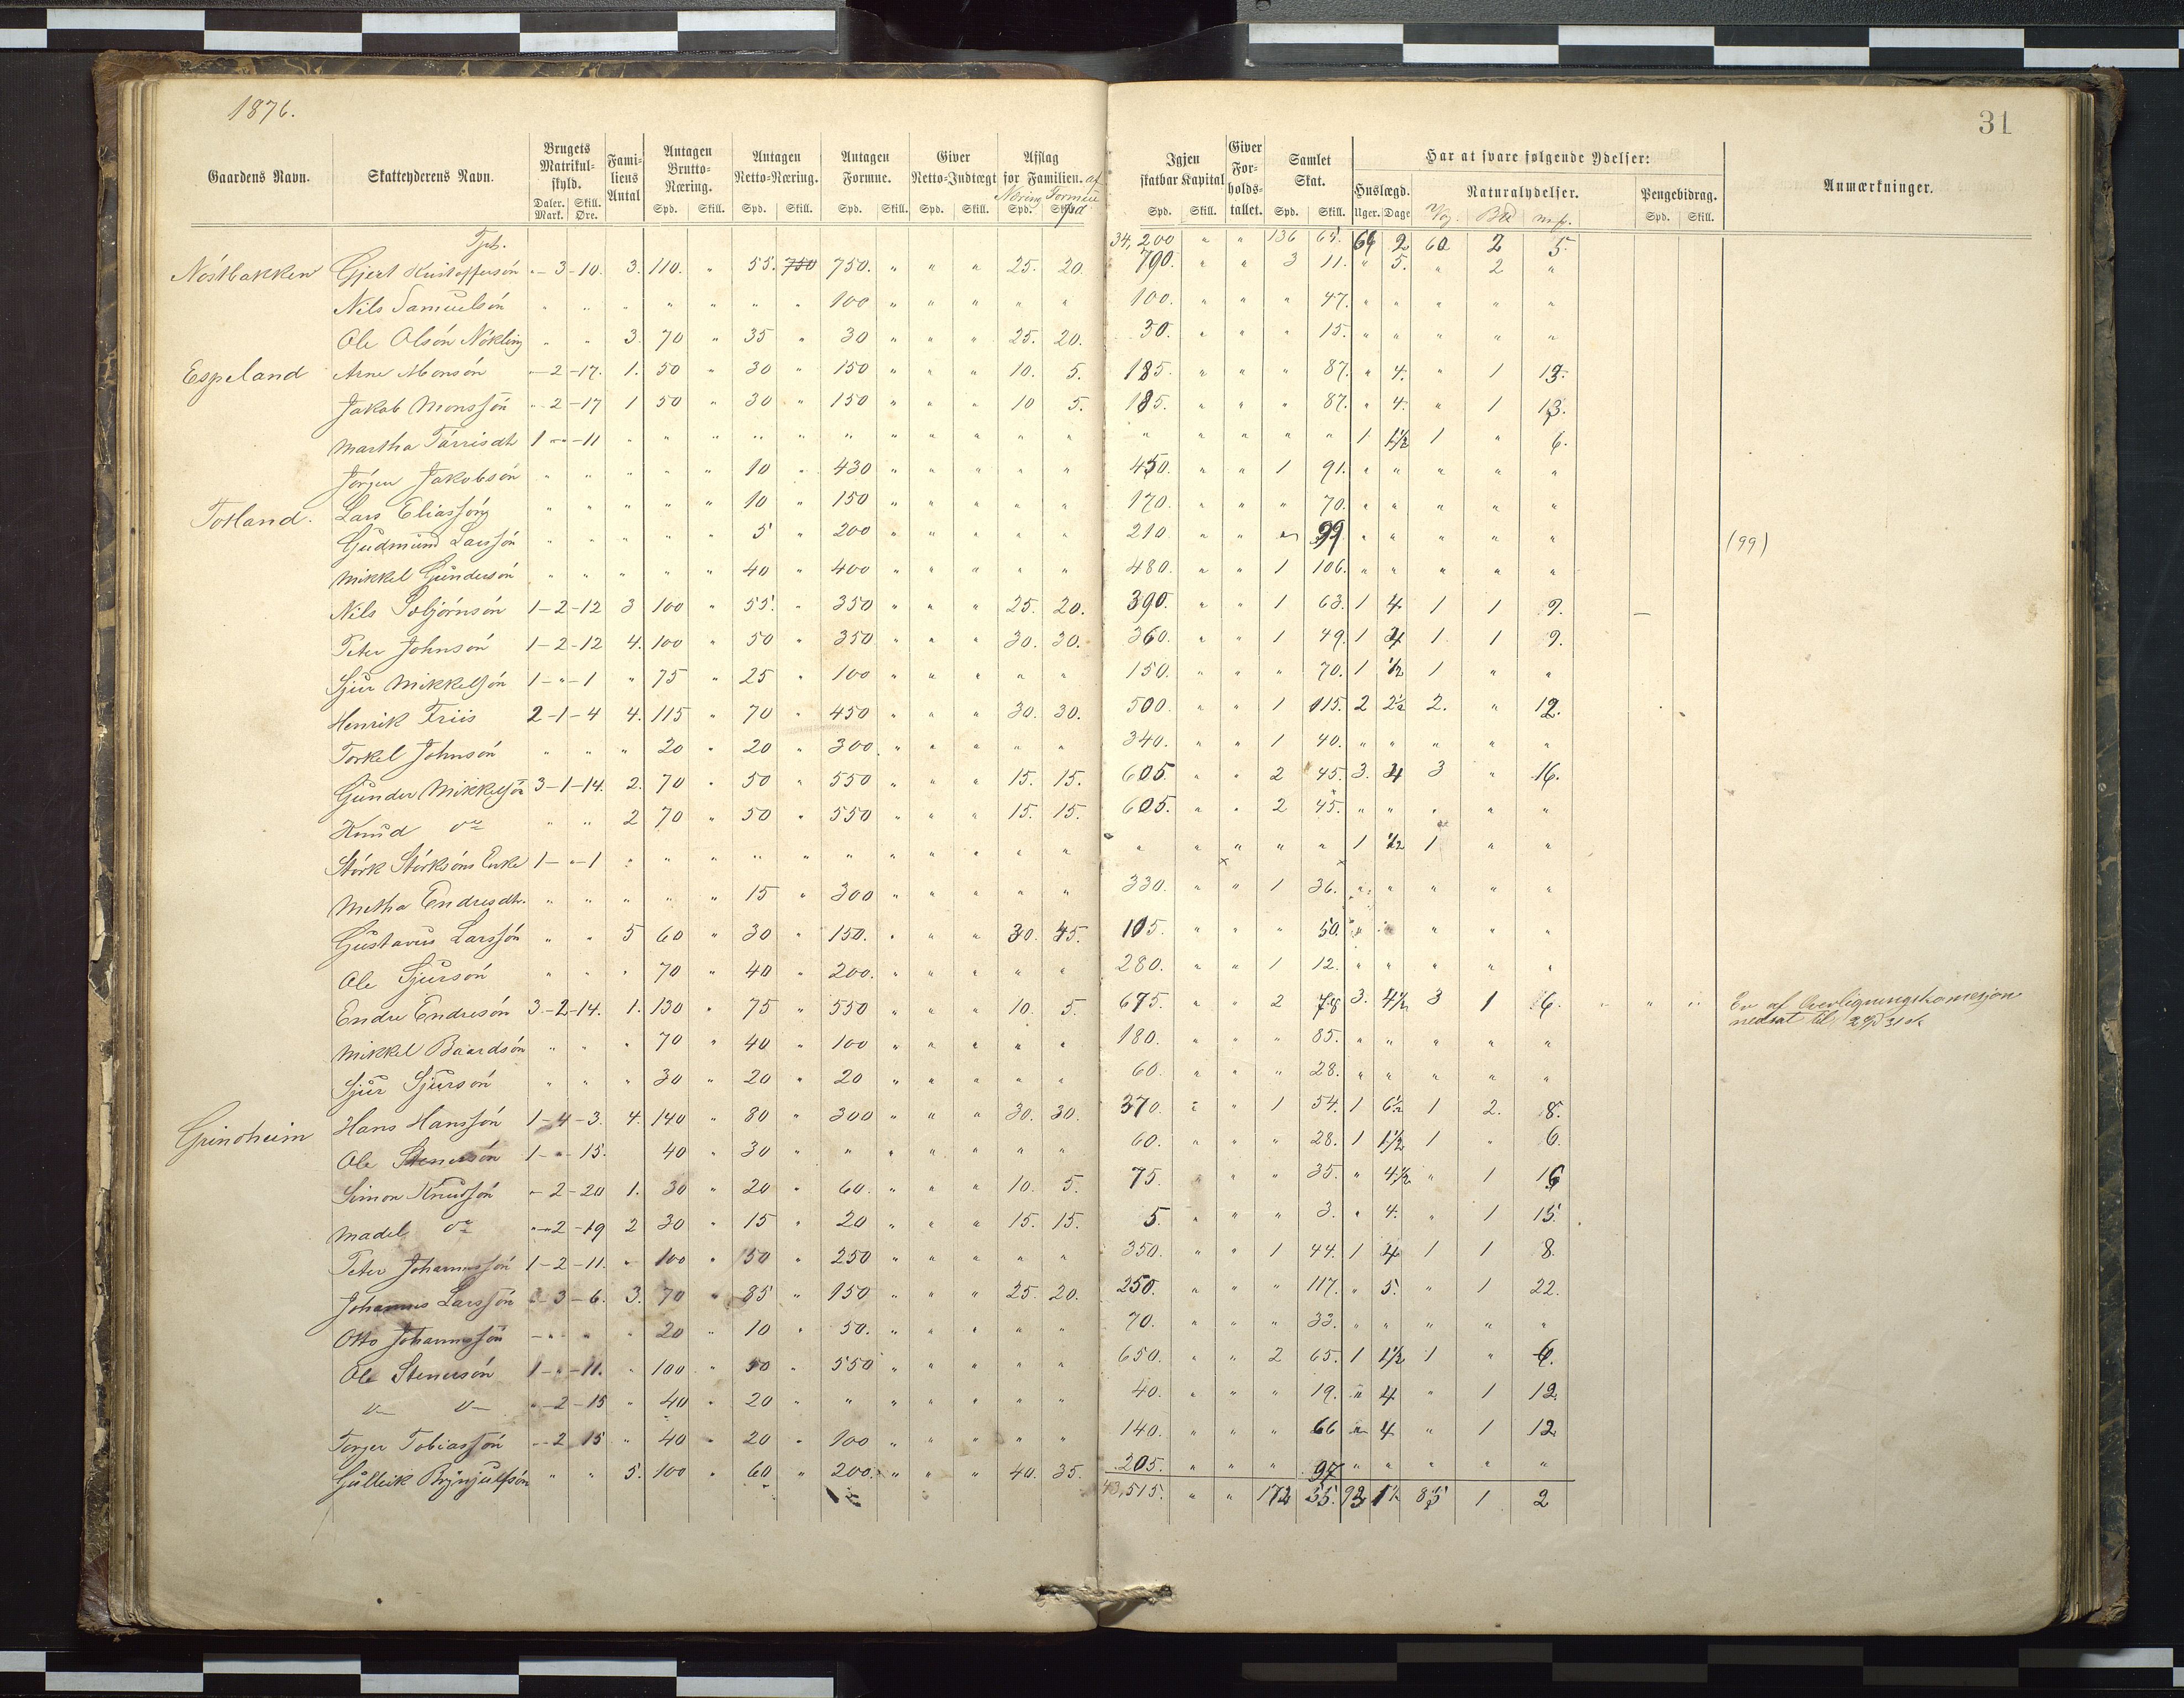 1876.
31
Gaardens Navn. Skatteyderens Navn. Brugets Matrikul-skyld. Daler. Mark. Skill. Øre. Familiens Antal Antagen Brutto-Næring. Spd. Skill. Antagen Netto-Næring. Spd. Skill. Antagen Formue. Spd. Skill. Giver Netto-Indtægt Spd. Skill. Afslag for Familien. af Næring Formue Spd. Skill. Igjen skatbar Kapital Spd. Skill. Giver Forholdstallet. Samlet Skat. Spd. Skill. Har at svare følgende Ydelser: Huslægd. Uger. Dage Naturalydelser. Byg. mk. Pengebidrag. Spd. Skill. Anmærkninger.
34,200 " " 136 65. 64 2 60 2 5.
Nøstbakken Gjert Kristoffersøn "-3-10. 3. 110. " 55. 750 750. " " " 25. 20. 790. " " 3 11. " 5. " 2 "
Nils Samuelsøn " " " " " " " 100 " " " " " 100. " " " 47. " " " " "
Ole Olsøn Nøkling " " 3. 70 " 35 " 30 " " " 25. 20. 30. " " " 15. " " " " "
Espeland Arne Monsøn "-2-17. 1. 50 " 30 " 150 " " " 10. 5. 185. " " " 87. " 4. " 1 13.
Jakob Monssøn "-2-17 1 50 " 30 " 150 " " " 10 5. 185. " " " 87. " 4. " 1 13.
Martha Tørrisdtr 1-"-11 " " " " " " " " " " " " " " " " 1 1½ 1 " 6.
Jørgen Jakobsøn " " " " " 10 " 430 " " " " " 450. " " 1 91. " " " " "
Totland. Lars Eliassøn " " " " " 10 " 150 " " " " " 170. " " " 70. " " " " "
Gudmund Larssøn " " " " " 5 " 200 " " " " " 210. " " " 99 " " " " " (99)
Mikkel Gundersøn " " " " " 40 " 400 " " " " " 480. " " 1 106. " " " " "
Nils Torbjørnsøn 1-2-12 3 100 " 55. " 350 " " " 25. 20. 390. " " 1 63. 1 4 1 1 9.
Peter Johnsøn 1-2-12 4. 100 " 50 " 350 " " " 30. 30. 360. " " 1 49. 1 4 1. 1 9.
Sjur Mikkelsøn 1-"-1 " 75 " 25 " 100 " " " " " 150. " " " 70. 1 ½ 1 " "
Henrik Friis 2-1-4 4. 115 " 70 " 450 " " " 30. 30. 500. " " 1 115. 2 2½ 2. " 12.
Torkel Johnsøn " " " 20 " 20 " 300. " " " " " 340. " " 1 40. " " " " "
Gunder Mikkelsøn 3-1-14. 2. 70 " 50 " 550 " " " 15. 15. 605. " " 2 45. 3. 4 3 " 16.
Knud do " " 2 70 " 50 " 550 " " " 15. 15. 605. " " 2 45. " " " " "
Størk Størksøns Enke 1-"-1 " " " " " " " " " " " " " " " " 1 ½ 1 " "
Metha Endresdtr. " " " " " 15 " 300 " " " " " 330. " " 1 36. " " " " "
Gustavus Larssøn " " 5 60 " 30 " 150. " " " 30. 45. 105. " " " 50. " " " " "
Ole Sjursøn " " " 70 " 40 " 200. " " " " " 280. " " 1 12. " " " " "
Endre Endresøn 3-2-14. 1. 130 " 75 " 550 " " " 10. 5. 675. " " 2 78 3. 4½ 3 1 6. " " " Er af Overligningskomisjonen
nedsat til 2 spd 31 sk
Mikkel Baardsøn " " " 70 " 40 " 100 " " " " " 180. " " " 85. " " " " "
Sjur Sjursøn " " " 30 " 20 " 20 " " " " " 60. " " " 28. " " " " "
Grindheim Hans Hanssøn 1-4-3. 4. 140 " 80 " 300 " " " 30. 30. 370. " " 1 54. 1 6½ 1 2. 8.
Ole Stenersøn 1-"-15. 40 " 30 " " " " " " " 60. " " " 28. 1 1½ 1 " 6.
Simon Knudsøn "-2-20 1. 30 " 20 " 60. " " " 10. 5. 75. " " " 35. " 4½ " 1 16
Madel do "-2-19 2 30 " 15 " 20 " " " 15. 15. 5. " " " 3. " 4. " 1 15.
Peter Johannessøn 1-2-11. " 100 " 50 " 250 " " " " " 350. " " 1 44. 1 4 1 1 8.
Johannes Larssøn "-3-6. 3. 70 " 85 " 150 " " " 25. 20. 250. " " " 117. " 5. " 1 22.
Otto Johannessøn " " " 20 " 10 " 50. " " " " " 70. " " " 33. " " " " "
Ole Stenersøn 1-"-11. " 100 " 50 " 550 " " " " " 650. " " 2 65. 1 1½ 1 " 6.
do do "-2-15 " 40 " 20 " " " " " " " 40. " " " 19. " 4 " 1 12.
Torger Tobiassøn "-2 15 " 40 " 20 " 100 " " " " " 140. " " " 66 " 4 " 1 12
Gulleik Brynjulfsøn " " 5. 100 " 60 " 200. " " " 40. 35. 205. " " " 97 " " " " "
43,515. " " 172 55. 93 1½ 85 1 2